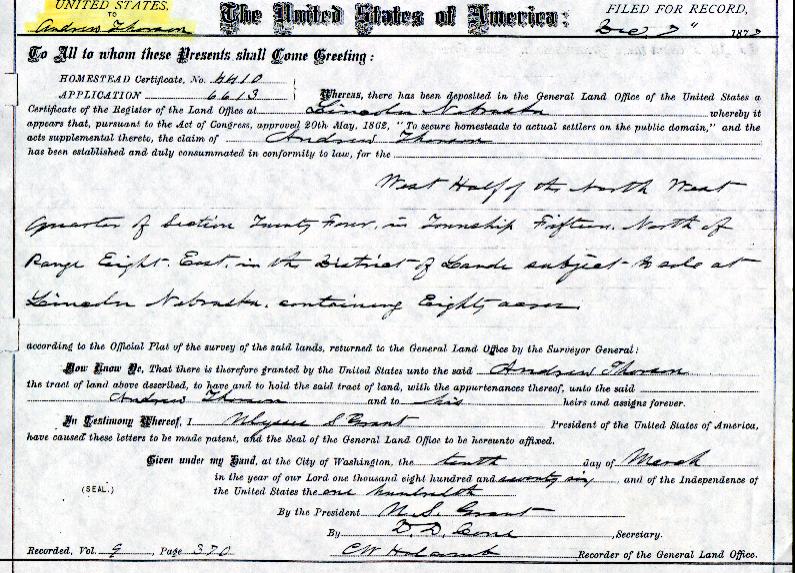 UNITED STATES.
TO
Andrew Thorson
The United States of America:
FILED FOR RECORD,
Dec. 7" 187
To All to whom these Presents shall Come Greeting:
HOMESTEAD Certificate, No. 4410
APPLICATION 6613
Whereas, there has been deposited in the General Land Office of the United States a
Certificate of the Register of the Land Office at Lincoln Nebraska whereby it
appears that, pursuant to the Act of Congress, approved 20th May, 1862, "To secure homesteads to actual settlers on the public domain," and the
acts supplemental thereto, the claim of Andrew Thorson
has been established and duly consummated in conformity to law, for the
West Half of the North West
quarter of Section Twenty Four, in Township Fifteen. North of
Range Eight. East, in the District of Lands subject to sale at
Lincoln Nebraska. containing Eighty acres
according to the Official Plat of the survey of the said lands, returned to the General Land Office by the Surveyor General:
Now Know Ye, That there is therefore granted by the United States unto the said Andrew Thorson
the tract of land above described, to have and to hold the said tract of land, with the appurtenances thereof, unto the said
Andrew Thorson and to his heirs and assigns forever.
In Testimony Whereof, I Ulysses S Grant President of the United States of America,
have caused these letters to be made patent, and the Seal of the General Land Office to be hereunto affixed.
Given under my Hand, at the City of Washington, the tenth day of March
in the year of our Lord one thousand eight hundred and seventy six, and of the Independence of
(SEAL.)
the United States the one hundredth
By the President U. S. Grant
By D. D. Cone, Secretary.
Recorded, Vol. 9, Page 370 CW Holcomb Recorder of the General Land Office.